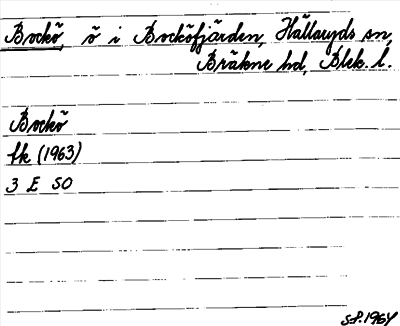 Bockö, ö i Bocköfjärden, Hällaryds sn,
Bräkne hd, Blek. l.
Bockö
Ek (1963)
3 E 50
S.P. 1964